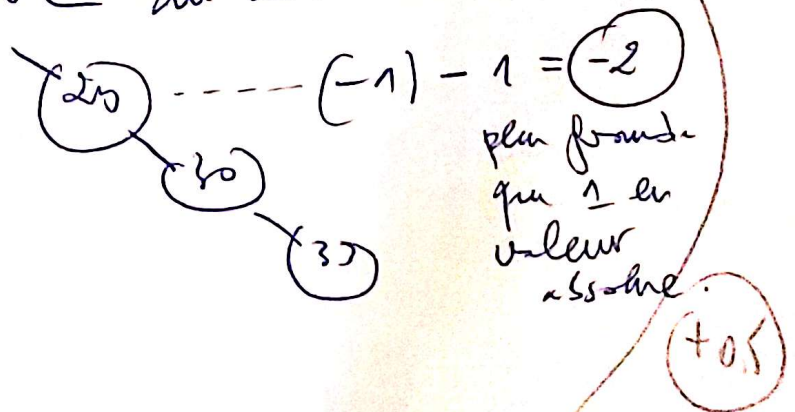 25 ------ (-1) - 1 = -2
plus grande
30
que 1 en
valeur
35
absolue.
+0,5